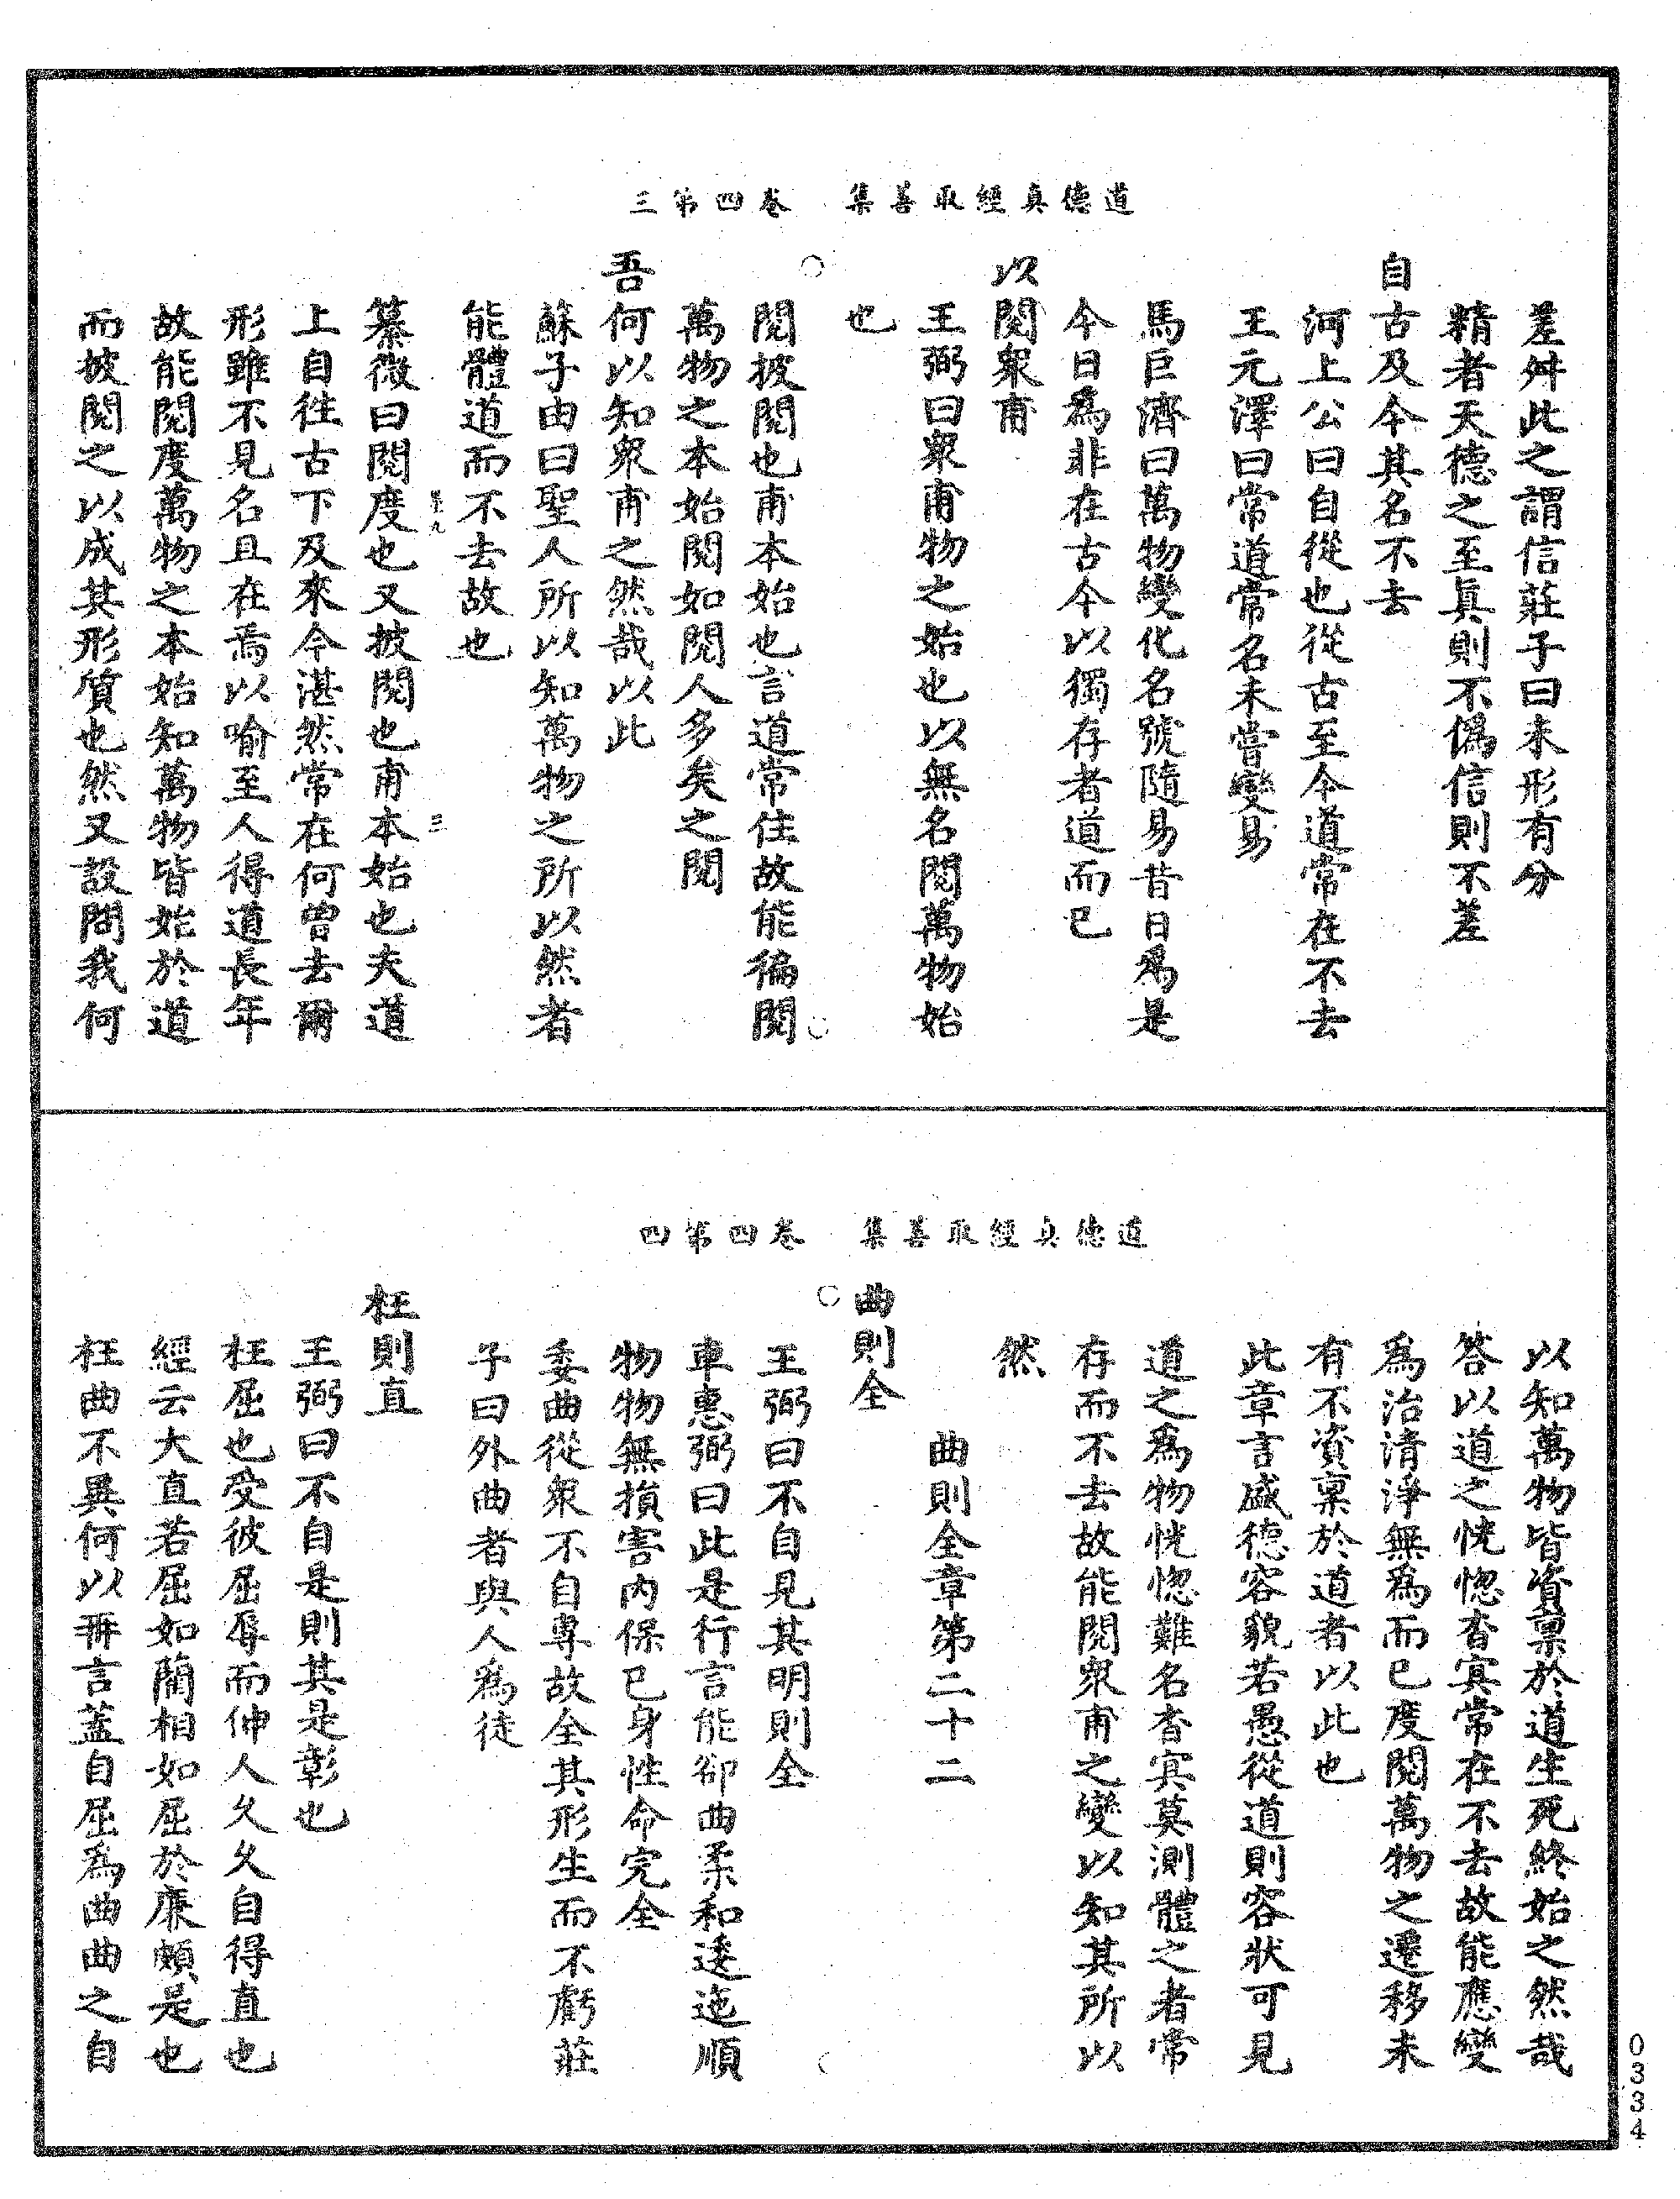 道德真經取善集　卷四第三
差舛此之謂信莊子曰未形有分
精者天德之至真則不僞信則不差
自古及今其名不去
河上公曰自從也從古至今道常在不去
王元澤曰常道常名未嘗變易
馬巨濟曰萬物變化名號隨易昔日爲是
今日爲非在古今以獨存者道而已
以閱衆甫
王弼曰衆甫物之始也以無名閱萬物始
也
閱披閱也甫本始也言道常住故能徧閱
萬物之本始閱如閱人多矣之閱
吾何以知衆甫之然哉以此
蘇子由曰聖人所以知萬物之所以然者
能體道而不去故也
纂微曰閱度也又披閱也甫本始也夫道
上自往古下及來今湛然常在何曾去爾
形雖不見名且在焉以喻至人得道長年
故能閱度萬物之本始知萬物皆始於道
而披閱之以成其形質也然又設問我何
道德真經取善集　卷四第四
以知萬物皆資稟於道生死終始之然哉
答以道之恍惚杳冥常在不去故能應變
爲治清淨無爲而已度閱萬物之遷移未
有不資稟於道者以此也
此章言盛德容貌若愚從道則容狀可見
道之爲物恍惚難名杳冥莫測體之者常
存而不去故能閱衆甫之變以知其所以
然
曲則全章第二十二
曲則全
王弼曰不自見其明則全
車惠弼曰此是行言能卻曲柔和逶迤順
物物無損害內保已身性命完全
委曲從衆不自專故全其形生而不虧莊
子曰外曲者與人爲徒
枉則直
王弼曰不自是則其是彰也
枉屈也受彼屈辱而伸人久久自得直也
經云大直若屈如藺相如屈於廉頗是也
枉曲不異何以再言蓋自屈爲曲曲之自
0334